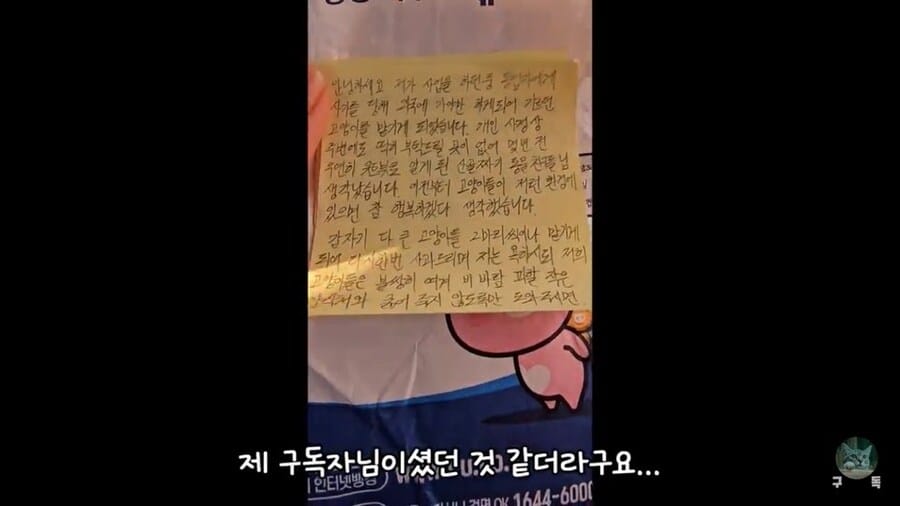 안녕하세요 제가 사업을 하던중 동업자에게
사기를 당해 외국에 가야만 하게되어 기르던
고양이를 맡기게 되었습니다. 개인 사정상
주변에도 딱히 부탁드릴 곳이 없어 몇번 전
우연히 유튜브로 알게 된 산골짜기 동을 찬들님
생각났습니다. 이전부터 고양이들이 저런 환경에
있으면 참 행복하겠다 생각했습니다.
갑자기 다 큰 고양이를 2마리씩이나 맡기게
되어 다시한번 사과드리며 저는 욕하셔도 저희
고양이들은 불쌍히 여겨 비바람 피할 작은
굶어 죽지 않도록만 도와주시면
제 구독자님이셨던 것 같더라구요...
인터넷방송
1644-6000
구독